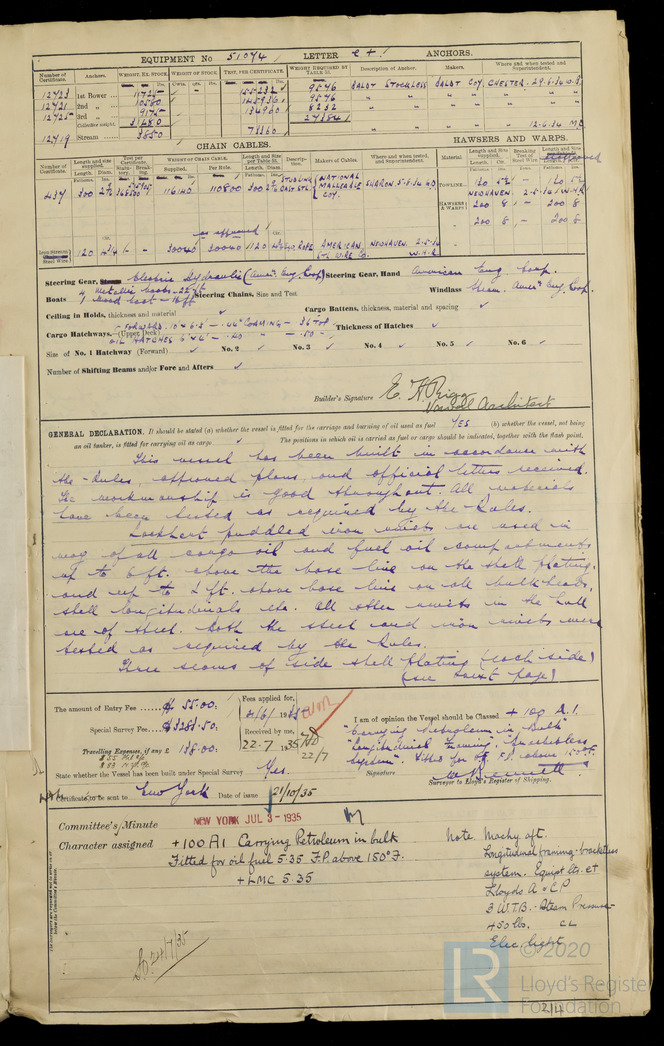 EQUIPMENT No 51074 LETTER e + ANCHORS.
Number of Certificate. Anchors. WEIGHT, EX. STOCK. WEIGHT OF STOCK. TEST, PER CERTIFICATE. WEIGHT REQUIRED BY TABLE 22. Description of Anchor. Makers. Where and when tested and Superintendent.
12723 1st Bower 11725 155232 9576 BALDT STOCKLESS BALDT COY. CHESTER
12721 2nd " 10580 145936 9576 " " "
12725 3rd " 9175 134960 8232 " " "
Collective weight. 31480 27384
12719 Stream 3850 73360 " " " 12.6.34
CHAIN CABLES. HAWSERS AND WARPS.
Number of Certificate. Length and size supplied. Test per Certificate. WEIGHT OF CHAIN CABLE. Length and size per Table 22. Description. Makers of Cables. Where and when tested, and Superintendent. Material. Length and Size supplied. Breaking Test of Steel Wire.
Supplied. Per Rule.
437 300 116140 110800 300 STUDLINK CAST STL. NATIONAL MALLEABLE COY. SHARON
TOWLINE 120 5½ - 120 5½
NEWHAVEN. 2-5-34 W.H.R
HAWSERS & WARPS 200 8 - 200 8
" 200 8 - 200 8
as approved
Steel Wire 120 4¾ - - 30040 30040 120 4¾ ROPE AMERICAN STL WIRE CO. NEWHAVEN. 2-5-34 W.H.R
Steering Gear, Electric Hydraulic (Amer. Eng. Coop) Steering Gear, Hand American Eng. Coop.
Boats 4 Metallic boats - 22 ft
1 Wood boat - 16 ft Steering Chains, Size and Test Windlass Steam. Amer. Eng. Coop.
Ceiling in Holds, thickness and material ✓ Cargo Battens, thickness, material and spacing ✓
Cargo Hatchways.—(Upper Deck) FORWARD. 10 x 6-2 - .44" COAMING - 36" Thickness of Hatches ✓
OIL HATCHES 6' x 6' - .40 " - .50 -
Size of No. 1 Hatchway (Forward) ✓ No. 2 ✓ No. 3 ✓ No. 4 ✓ No. 5 ✓ No. 6 ✓
Number of Shifting Beams and/or Fore and Afters ✓
Builder's Signature E. H. Rigg
Naval Architect
GENERAL DECLARATION. It should be stated (a) whether the vessel is fitted for the carriage and burning of oil used as fuel YES (b) whether the vessel, not being
an oil tanker, is fitted for carrying oil as cargo ✓ The positions in which oil is carried as fuel or cargo should be indicated, together with the flash point.
This vessel has been built in accordance with
the Rules, approved plans, and official letters received.
The workmanship is good throughout. All materials
have been tested as required by the Rules.
Lockhart puddled iron rivets are used in
way of all cargo oil and fuel oil compartments
up to 6 ft. above the base line on the shell plating,
and up to 2 ft. above base line on all bulkheads,
shell longitudinals etc. All other rivets in the hull
are of steel. Both the steel and iron rivets were
tested as required by the Rules.
Three seams of side shell plating (each side)
(see next page)
The amount of Entry Fee ...... $ 55.00.
Special Survey Fee.... $3283.50.
Travelling Expenses, if any £ 138.00.
Fees applied for,
Received by me,
22-7-1935
22/7
State whether the Vessel has been built under Special Survey Yes.
I am of opinion the Vessel should be Classed + 100 A.1.
"Carrying Petroleum in Bulk"
"Longitudinal Framing. Bracketless
System". Fitted for O.F. F.P. above 150°F.
Signature W. Bennett
Surveyor to Lloyd's Register of Shipping.
Certificate to be sent to New York Date of issue 21/10/35
Committee's Minute NEW YORK JUL 3 - 1935
Character assigned +100A1 Carrying Petroleum in bulk
Fitted for oil fuel 5.35 F.P. above 150°F.
+ LMC 5.35
Note. Machy aft.
Longitudinal framing - bracketless
system. Equipt ltr. e+
Lloyds A & C P
3 W.T.B. Steam Pressure
450 lbs. CL
Elec. light
24/7/35
LR
© 2020
Lloyd's Register
Foundation